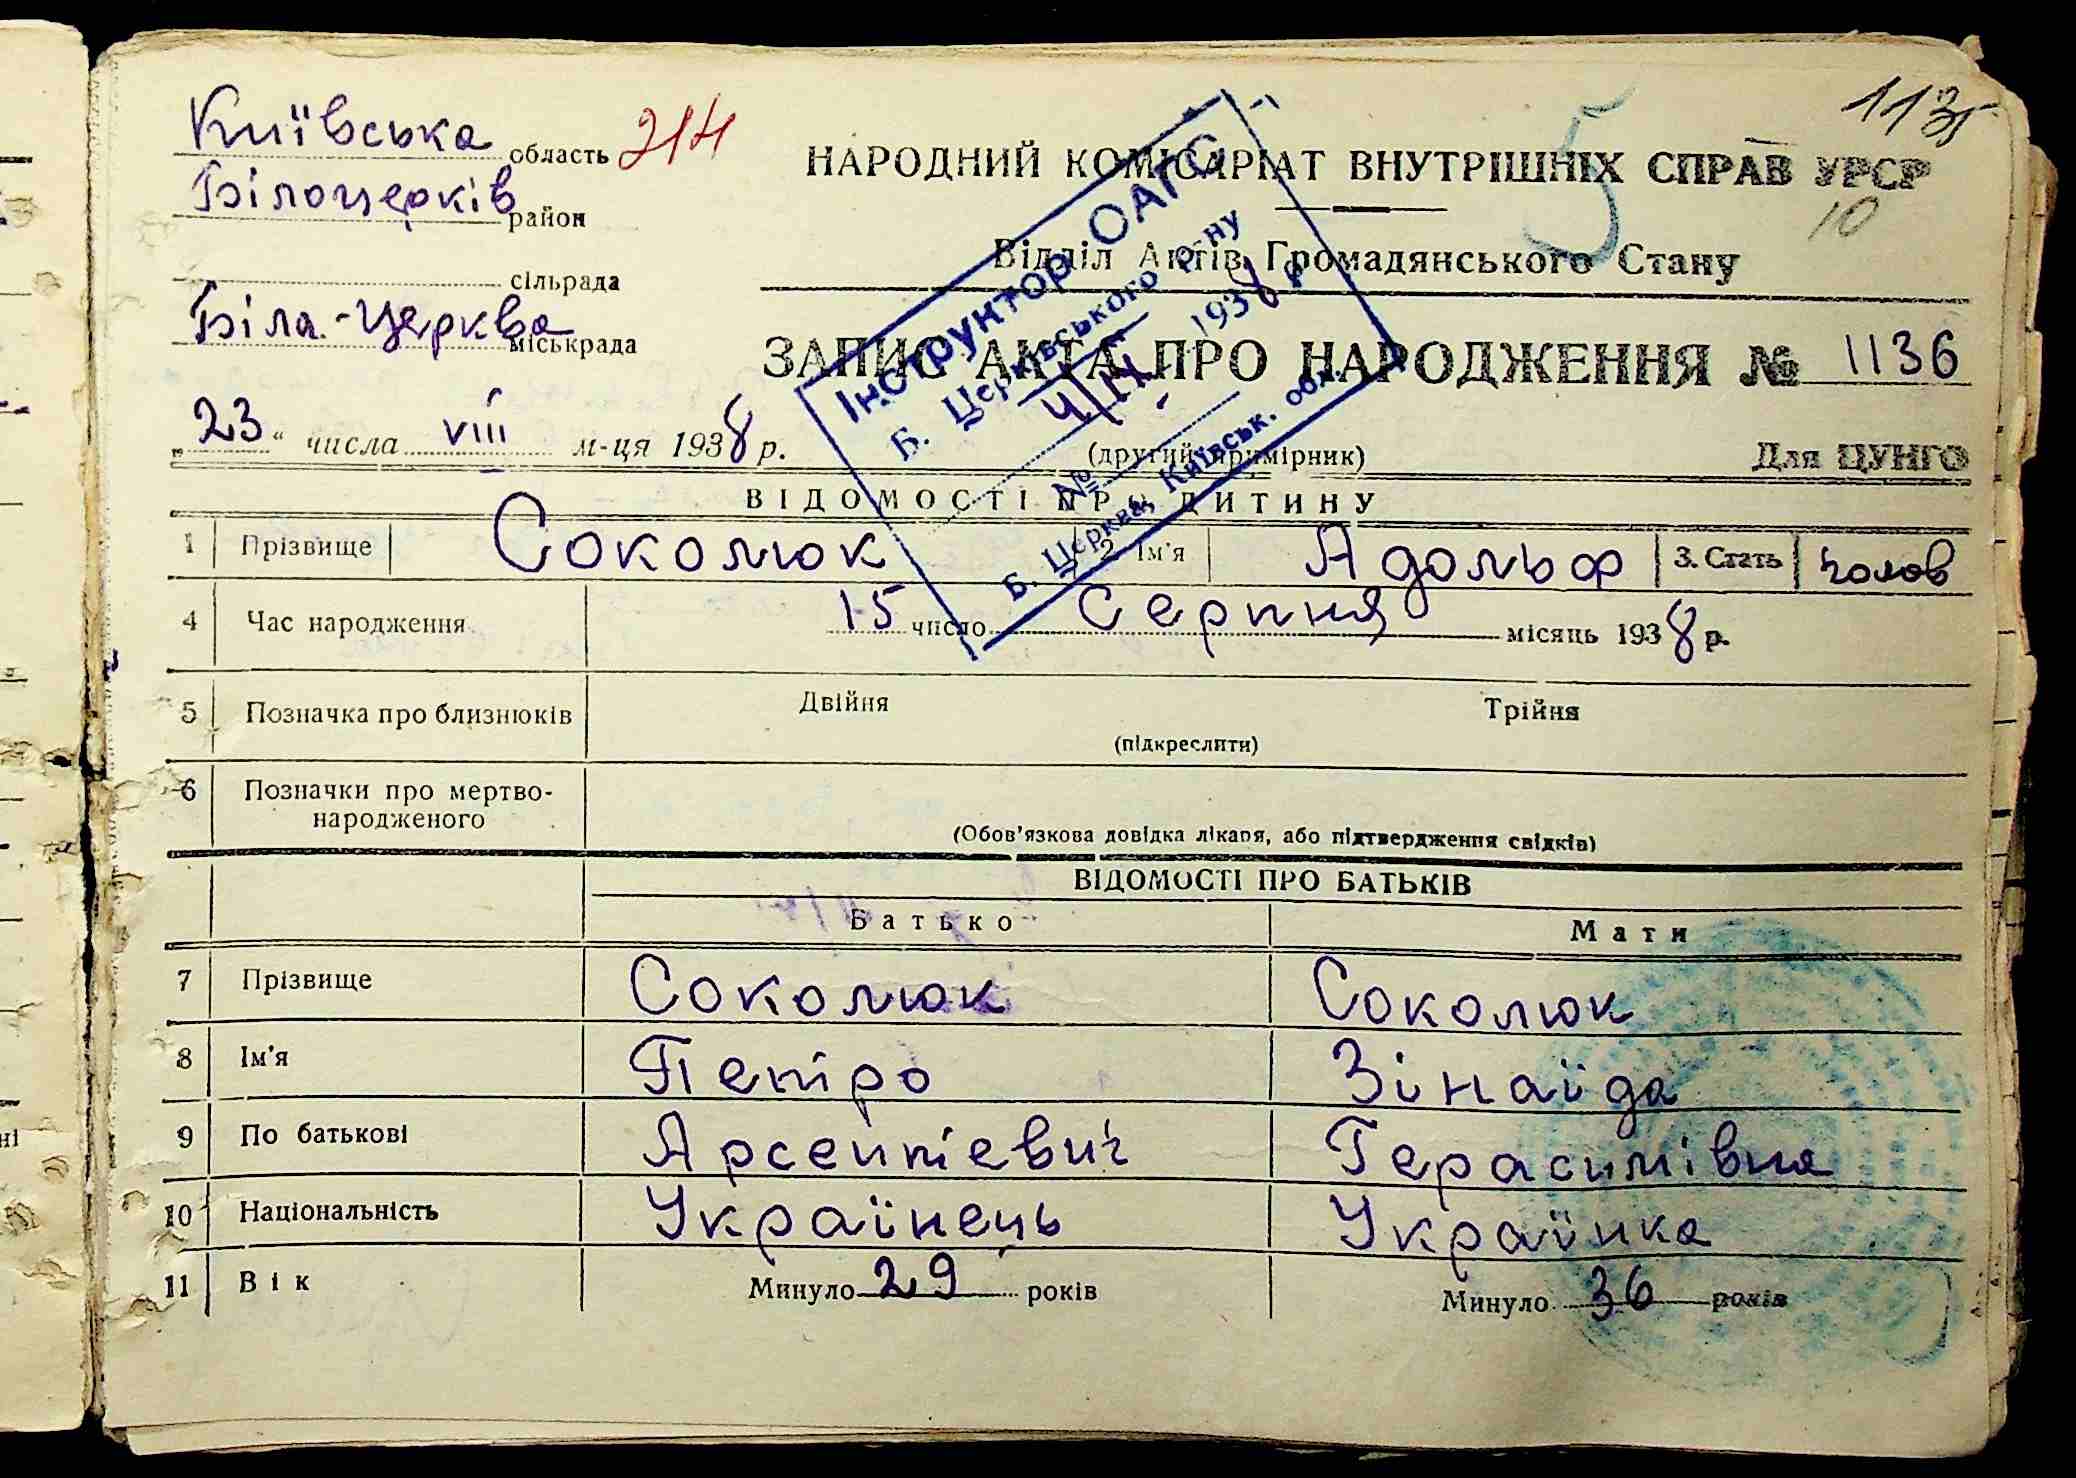 Київська область 214
Білоцерків район
сільрада
Біла-Церква міськрада
113
НАРОДНИЙ КОМІСАРІАТ ВНУТРІШНІХ СПРАВ УРСР
5 10
Відділ Актів Громадянського Стану
ЗАПИС АКТА ПРО НАРОДЖЕННЯ № 1136
„23“ числа VIII м-ця 1938 р.
(другий примірник) Для ЦУНГО
Інструктор ОАГС
Б. Церківського р-ну
4/IX 1938 р
№
Б. Церква, Київськ. обл.
ВІДОМОСТІ ПРО ДИТИНУ
1 Прізвище Соколюк 2 Ім'я Адольф 3. Стать чолов
4 Час народження 15 число Серпня місяць 1938 р.
5 Позначка про близнюків Двійня Трійня
(підкреслити)
6 Позначки про мертво-
народженого
(Обов'язкова довідка лікаря, або підтвердження свідків)
ВІДОМОСТІ ПРО БАТЬКІВ
Батько Мати
7 Прізвище Соколюк Соколюк
8 Ім'я Петро Зінаїда
9 По батькові Арсентієвич Герасимівна
10 Національність Українець Українка
11 Вік Минуло 29 років Минуло 36 років